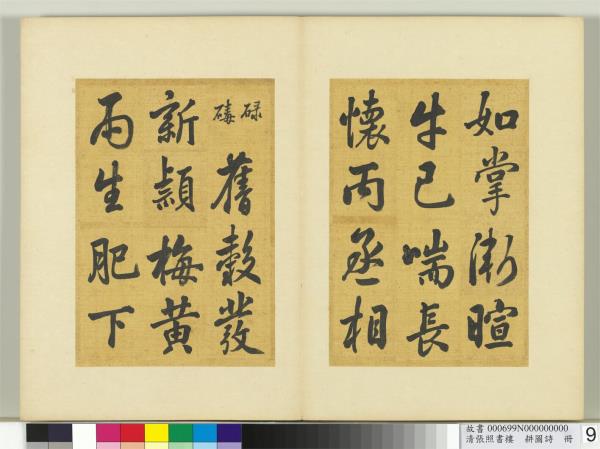 如掌漸暄
牛已喘長
懷丙丞相
碌碡
舊穀發
新穎梅黃
雨生肥下
故書 000699N000000000
清張照書樓 耕圖詩 冊
9